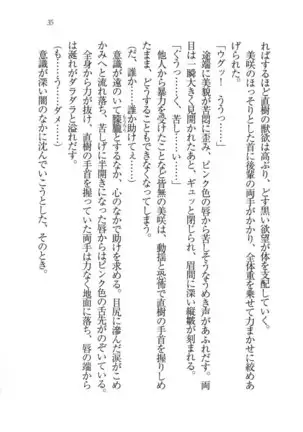 35
ればするほど直樹の獣欲は高ぶり、どす黒い欲望が体を支配していく。
美咲のほっそりとした首に後輩の両手がかかり、全体重を乗せて力まかせに締め上
げられた。
「ウグッ！ ううっ……」
途端に美咲が苦悶に歪み、ピンク色の唇から苦しそうなうめき声があふれだす。両
目は一瞬大きく見開かれたあと、ギュッと閉じられ、眉間に深い縦皺が刻まれる。
「くうっ……く、苦しい……」
他人から暴力を受けたことなど皆無の美咲は、動揺と恐怖で直樹の手首を握りしめ
たまま、どうすることもできない。
（だ、誰か……誰か助けてぇ……）
意識が遠のいて朦朧としながら、心のなかで助けを求める。目尻に滲んだ涙がこめ
かみへと流れ落ち、苦しげに半開きになった唇からはピンク色の舌先がのぞいている。
全身から力が抜け、直樹の手首を握っていた両手は力なく地面に落ち、唇の端から
は涎れがダラダラと溢れだす。
（も……もう……ダメ……）
意識が深い闇のなかに沈んでいこうとした、そのとき。